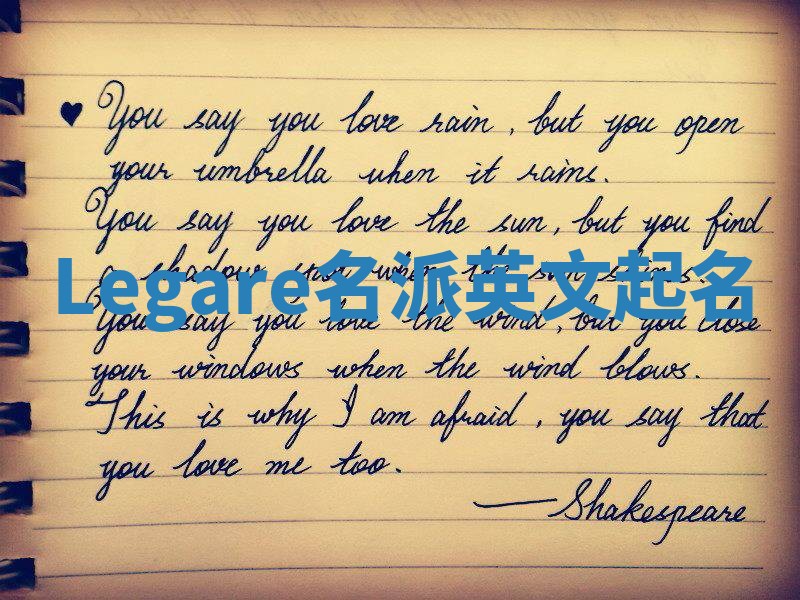 ♥ You say you love rain, but you open
your umbrella when it rains.
You say you love the sun, but you find
a shadow spot when the sun shines.
Legare名派英文起名
You say you love the wind, but you close
your windows when the wind blows.
This is why I am afraid, you say that
you love me too.
—Shakespeare